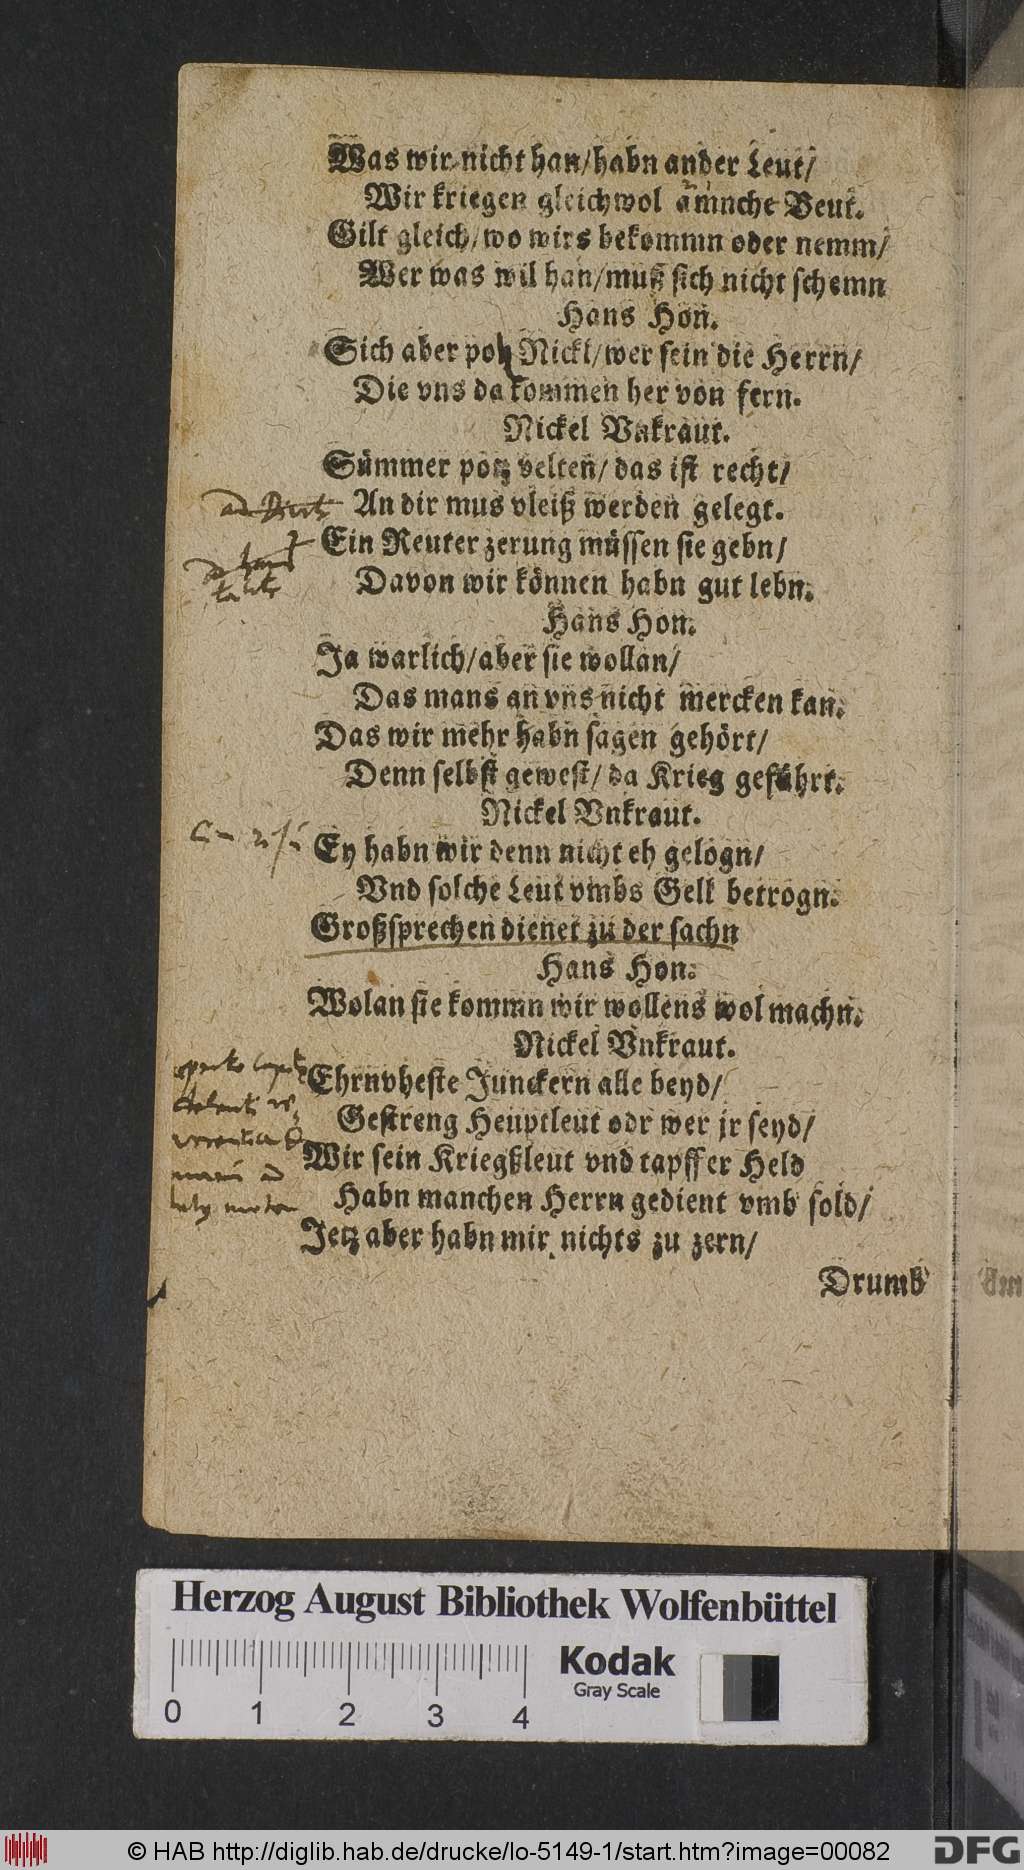 Was wir nicht han/habn ander Leut/
Wir kriegen gleichwol ämnche Beut.
Gilt gleich/wo wirs bekommn oder nemm/
Wer was wil han/muß sich nicht schemn
Hans Hon.
Sich aber potz Nickl/wer sein die Herrn/
Die vns da kommen her von fern.
Nickel Vnkraut.
Sümmer potz velten/das ist recht/
An dir mus vleiß werden gelegt.
Ein Reuter zerung müssen sie gebn/
Davon wir können habn gut lebn.
Hans Hon.
Ja warlich/aber sie wollan/
Das mans an vns nicht mercken kan.
Das wir mehr habn sagen gehört/
Denn selbst gewest/da Krieg geführt.
Nickel Vnkraut.
Ey habn wir denn nicht eh gelogn/
Vnd solche Leut vmbs Gelt betrogn.
Großsprechen dienet zu der sachn
Hans Hon.
Wolan sie kommn wir wollens wol machn.
Nickel Vnkraut.
Ehrnvheste Junckern alle beyd/
Gestreng Heuptleut odr wer jr seyd/
Wir sein Kriegßleut vnd tapffer Held
Habn manchen Herrn gedient vmb sold/
Jetz aber habn mir nichts zu zern/
Drumb
Herzog August Bibliothek Wolfenbüttel
Kodak
Gray Scale
0 1 2 3 4
© HAB http://diglib.hab.de/drucke/lo-5149-1/start.htm?image=00082
DFG